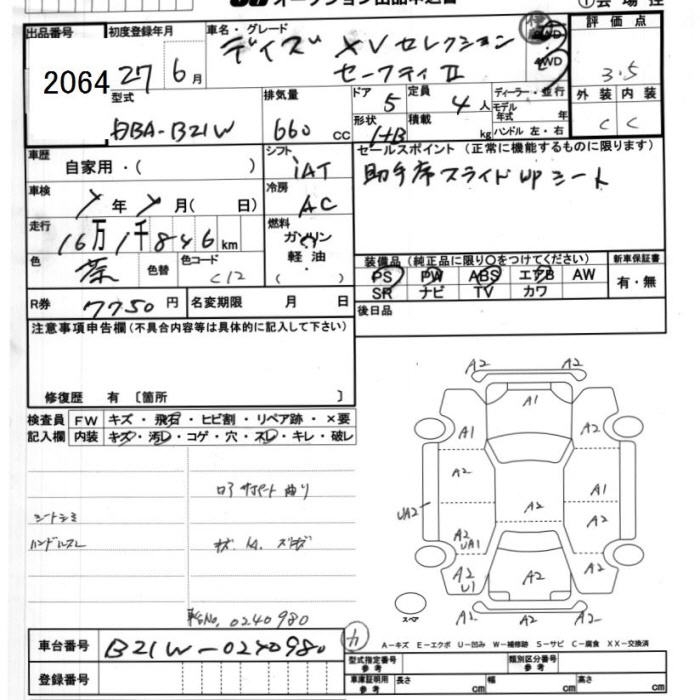 出品番号 2064
初度登録年月 27 6月
車名・グレード デイズ XVセレクション
セーフティII
2WD
4WD
①会場控
評価点 3.5
外装 C 内装 C
型式 DBA-B21W
排気量 660 cc
ドア 5 定員 4人
形状 HB 積載 kg
ディーラー・並行
モデル年式 年
ハンドル 左・右
車歴 自家用・( )
シフト iAT
セールスポイント (正常に機能するものに限ります)
助手席スライドupシート
車検 年 月 ( 日)
冷房 AC
走行 16万1千846km
燃料 ガソリン
軽油・
( )
色 茶 色替 色コード C12
装備品 (純正品に限り○をつけてください)
PS PW ABS エアB AW
SR ナビ TV カワ
新車保証書
有・無
R券 7750円 名変期限 月 日
後日品
注意事項申告欄(不具合内容等は具体的に記入して下さい)
修復歴 有 〔箇所 〕
検査員 FW キズ・飛石・ヒビ割・リペア跡・×要
記入欄 内装 キズ・汚レ・コゲ・穴・スレ・キレ・破レ
シートシミ
ハンドルスレ
A2 A2
A1
A1
A2 A1
UA2 A2 A2
A2
UA1
A2
U1 A2 A2
スペア
A2 A2
車台No, 0240980
車台番号 B21W-0240980
A-キズ E-エクボ U-凹み W-補修跡 S-サビ C-腐食 XX-交換済
登録番号
型式指定番号参考
類別区分番号参考
車庫証明用参考 長さ cm 幅 cm 高さ cm